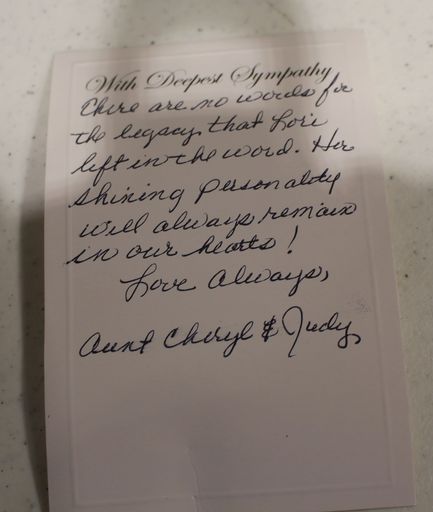 With Deepest Sympathy
There are no words for
the legacy that Lori
left in the word. Her
shining personality
will always remain
in our hearts!
Love Always,
Aunt Cheryl & Judy